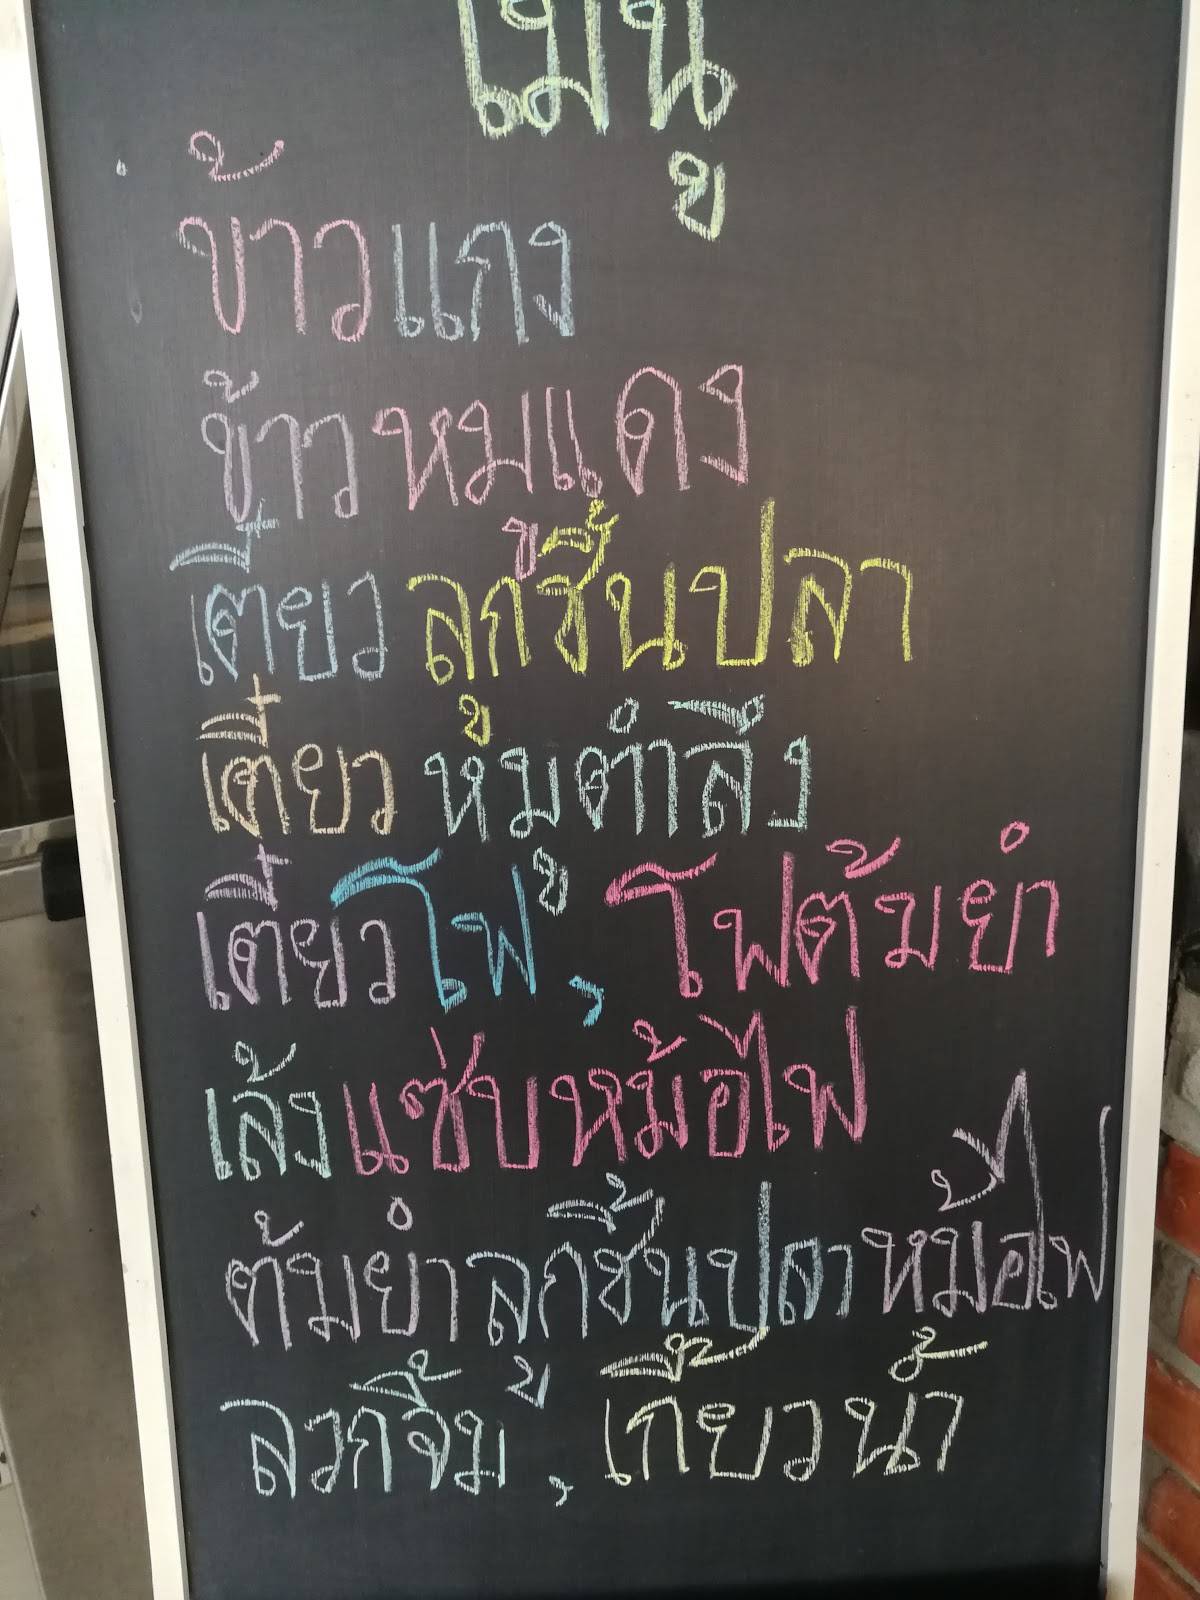 เมนู
ข้าวแกง
ข้าวหมูแดง
เตี๋ยวลูกชิ้นปลา
เตี๋ยวหมูตำลึง
เตี๋ยวโฟ, โฟต้มยำ
เล้งแซ่บหม้อไฟ
ต้มยำลูกชิ้นปลาหม้อไฟ
ลวกจิ้ม, เกี๊ยวน้ำ